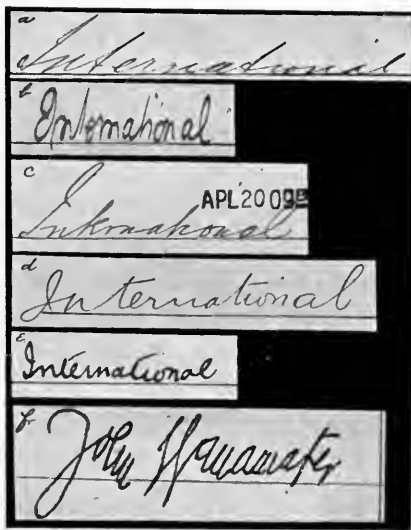 a
International
b
International
c
APL 20 09
International
d
International
e
International
f
John Wanamaker